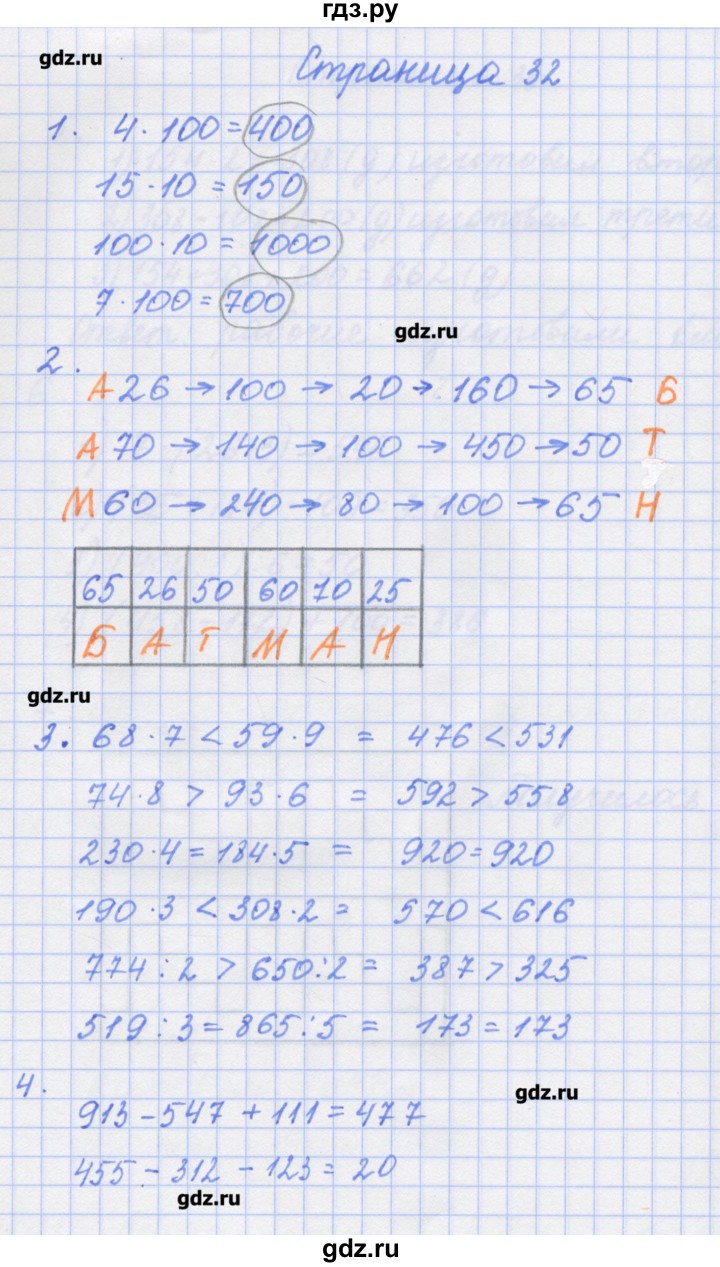 гдз.ру
gdz.ru
Страница 32
1. 4 · 100 = 400
15 · 10 = 150
100 · 10 = 1000
7 · 100 = 700
gdz.ru
2.
А 26 → 100 → 20 → 160 → 65 Б
А 70 → 140 → 100 → 450 → 50 Т
М 60 → 240 → 80 → 100 → 65 Н
65 26 50 60 70 25
Б А Т М А Н
gdz.ru
3. 68 · 7 < 59 · 9 = 476 < 531
74 · 8 > 93 · 6 = 592 > 558
230 · 4 = 184 · 5 = 920 = 920
190 · 3 < 308 · 2 = 570 < 616
774 : 2 > 650 : 2 = 387 > 325
519 : 3 = 865 : 5 = 173 = 173
4.
gdz.ru
913 - 547 + 111 = 477
455 - 312 - 123 = 20
gdz.ru
gdz.ru